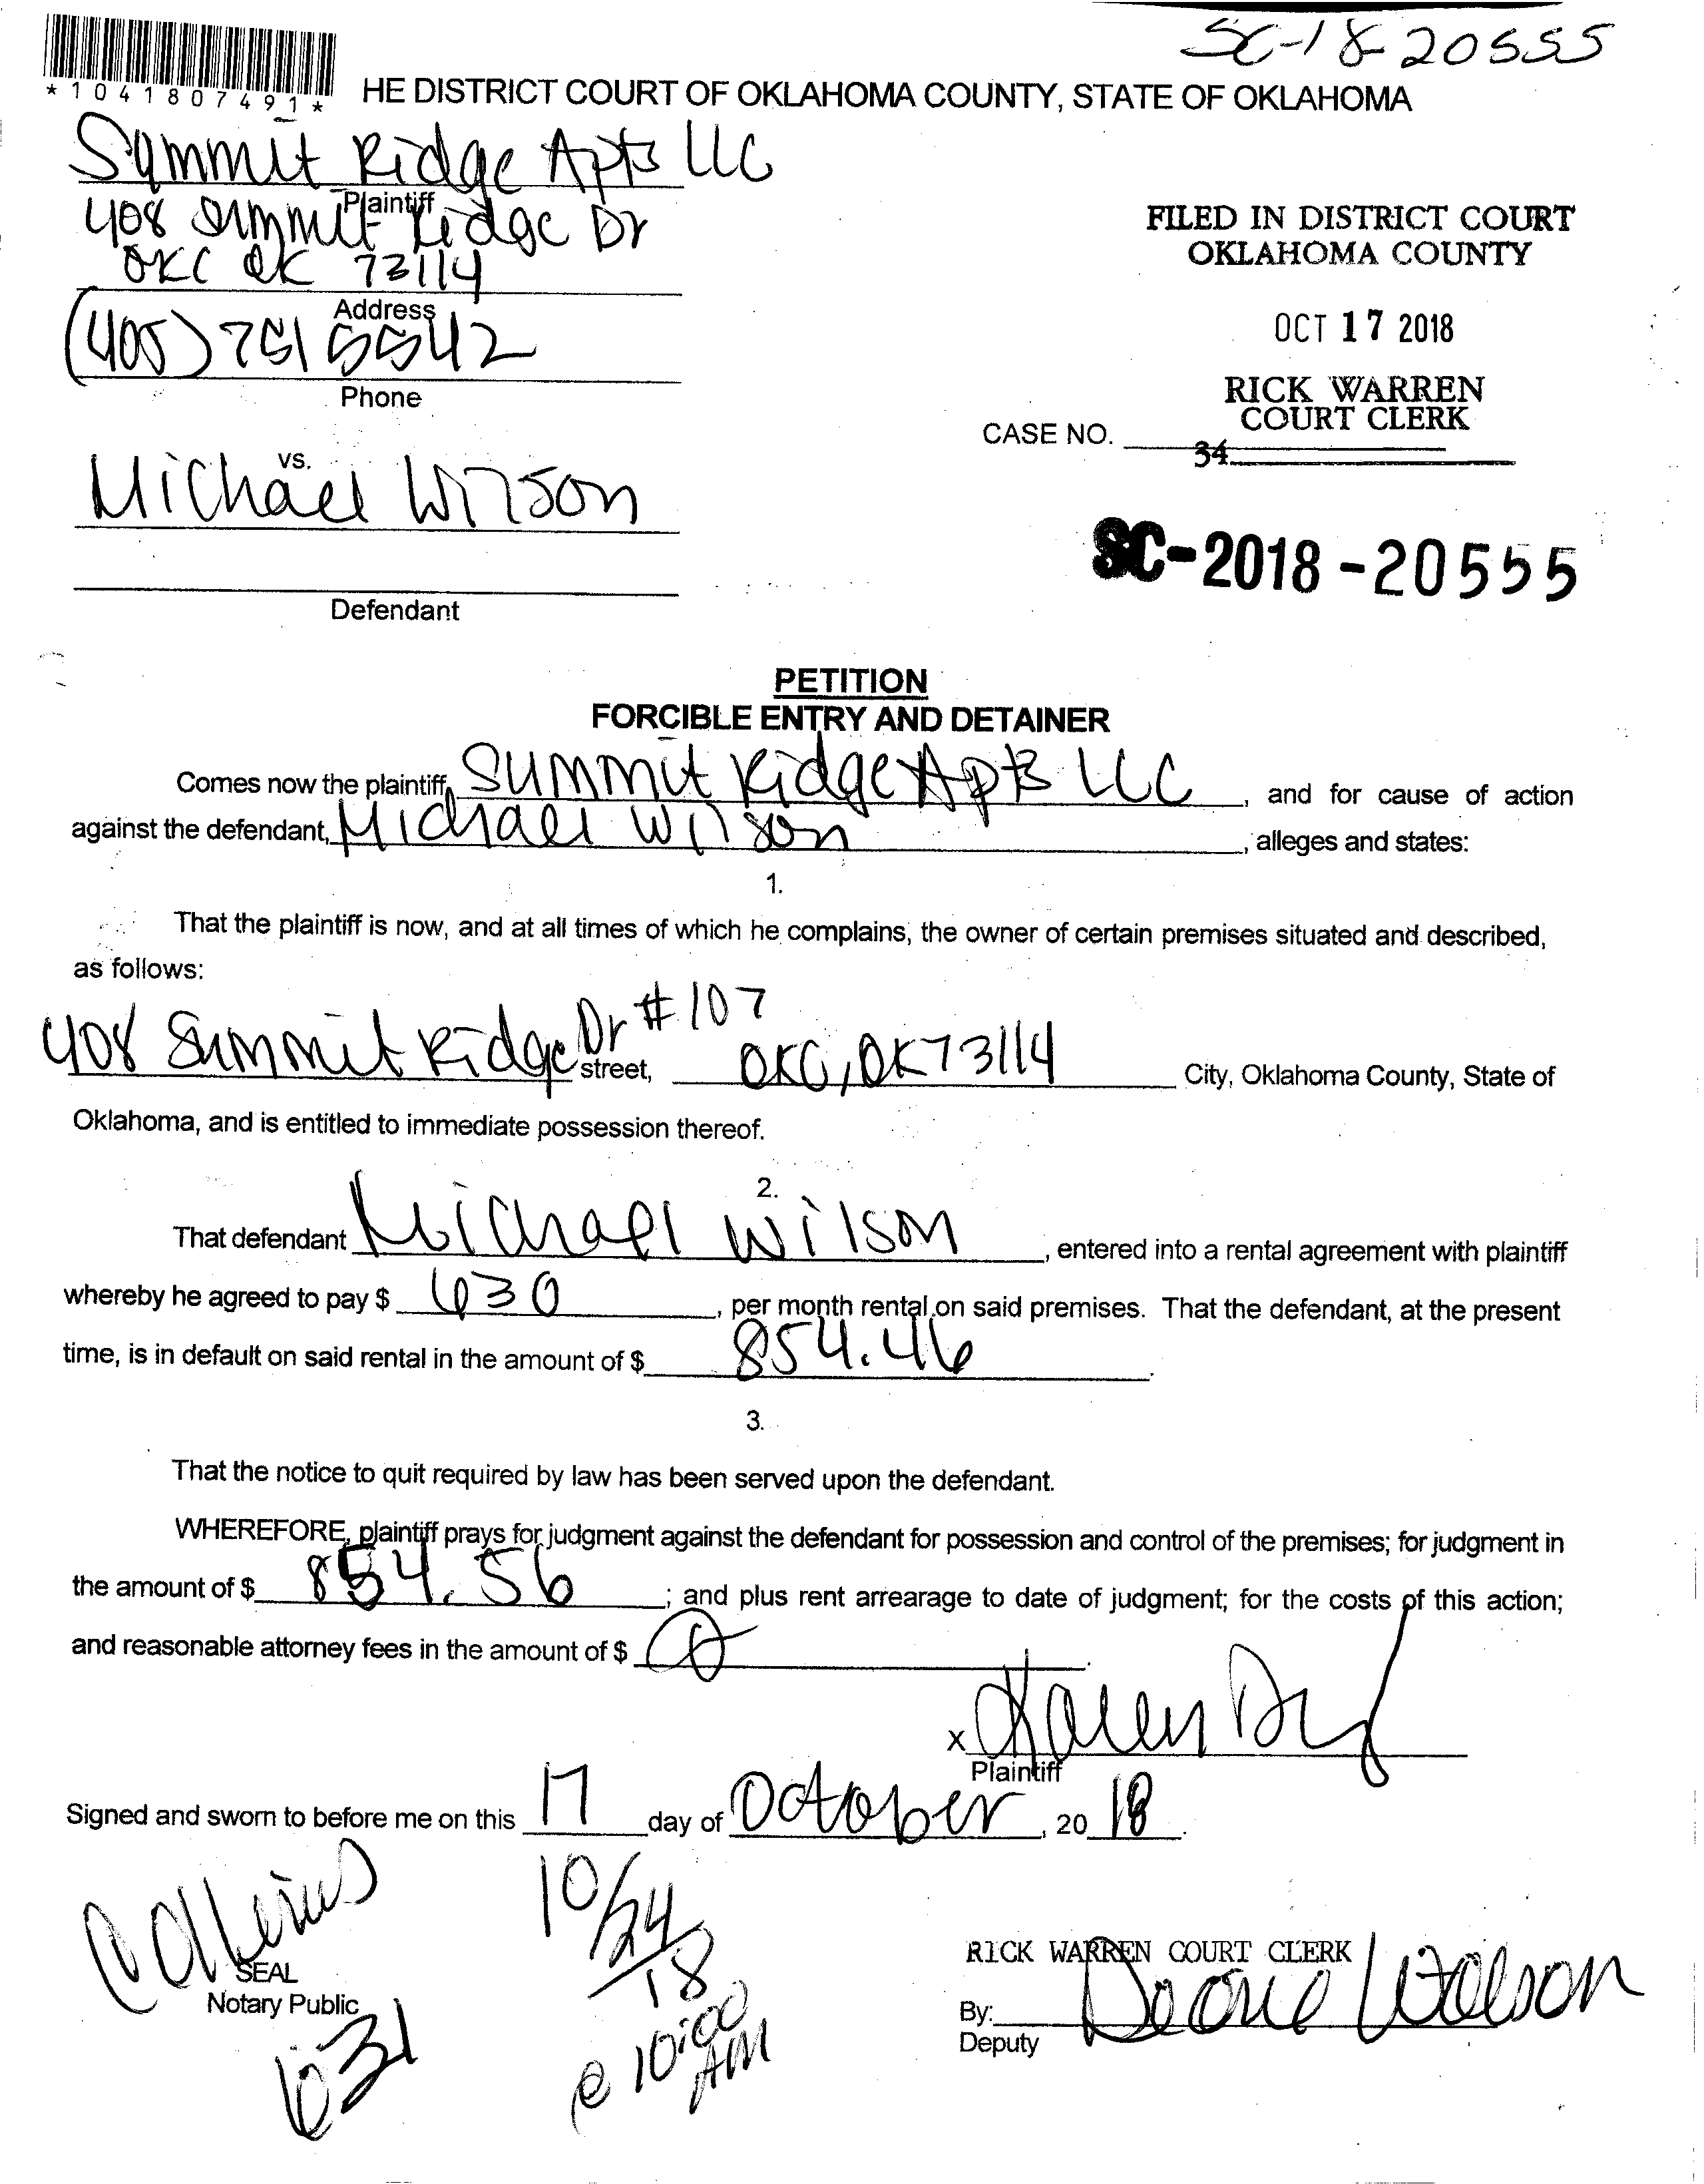 SC-18-20555
*1041807491*
HE DISTRICT COURT OF OKLAHOMA COUNTY, STATE OF OKLAHOMA
Summit Ridge Apts LLC
Plaintiff
408 Summit Ridge Dr
OKC OK 73114
Address
(405) 751 5542
Phone
FILED IN DISTRICT COURT
OKLAHOMA COUNTY
OCT 17 2018
RICK WARREN
COURT CLERK
CASE NO.
34
vs.
Michael Wilson
SC-2018-20555
Defendant
PETITION
FORCIBLE ENTRY AND DETAINER
Comes now the plaintiff, Summit Ridge Apts LLC, and for cause of action
against the defendant, Michael Wilson, alleges and states:
1.
That the plaintiff is now, and at all times of which he complains, the owner of certain premises situated and described,
as follows:
408 Summit Ridge Dr #107 street, OKC, OK 73114 City, Oklahoma County, State of
Oklahoma, and is entitled to immediate possession thereof.
2.
That defendant Michael Wilson, entered into a rental agreement with plaintiff
whereby he agreed to pay $ 630, per month rental on said premises. That the defendant, at the present
time, is in default on said rental in the amount of $ 854.46.
3.
That the notice to quit required by law has been served upon the defendant.
WHEREFORE, plaintiff prays for judgment against the defendant for possession and control of the premises; for judgment in
the amount of $ 854.56; and plus rent arrearage to date of judgment; for the costs of this action;
and reasonable attorney fees in the amount of $ 0.
x Karen
Plaintiff
Signed and sworn to before me on this 17 day of October, 20 18.
SEAL
Notary Public
631
10/24
18
@ 10:00
AM
RICK WARREN COURT CLERK
By:
Deputy